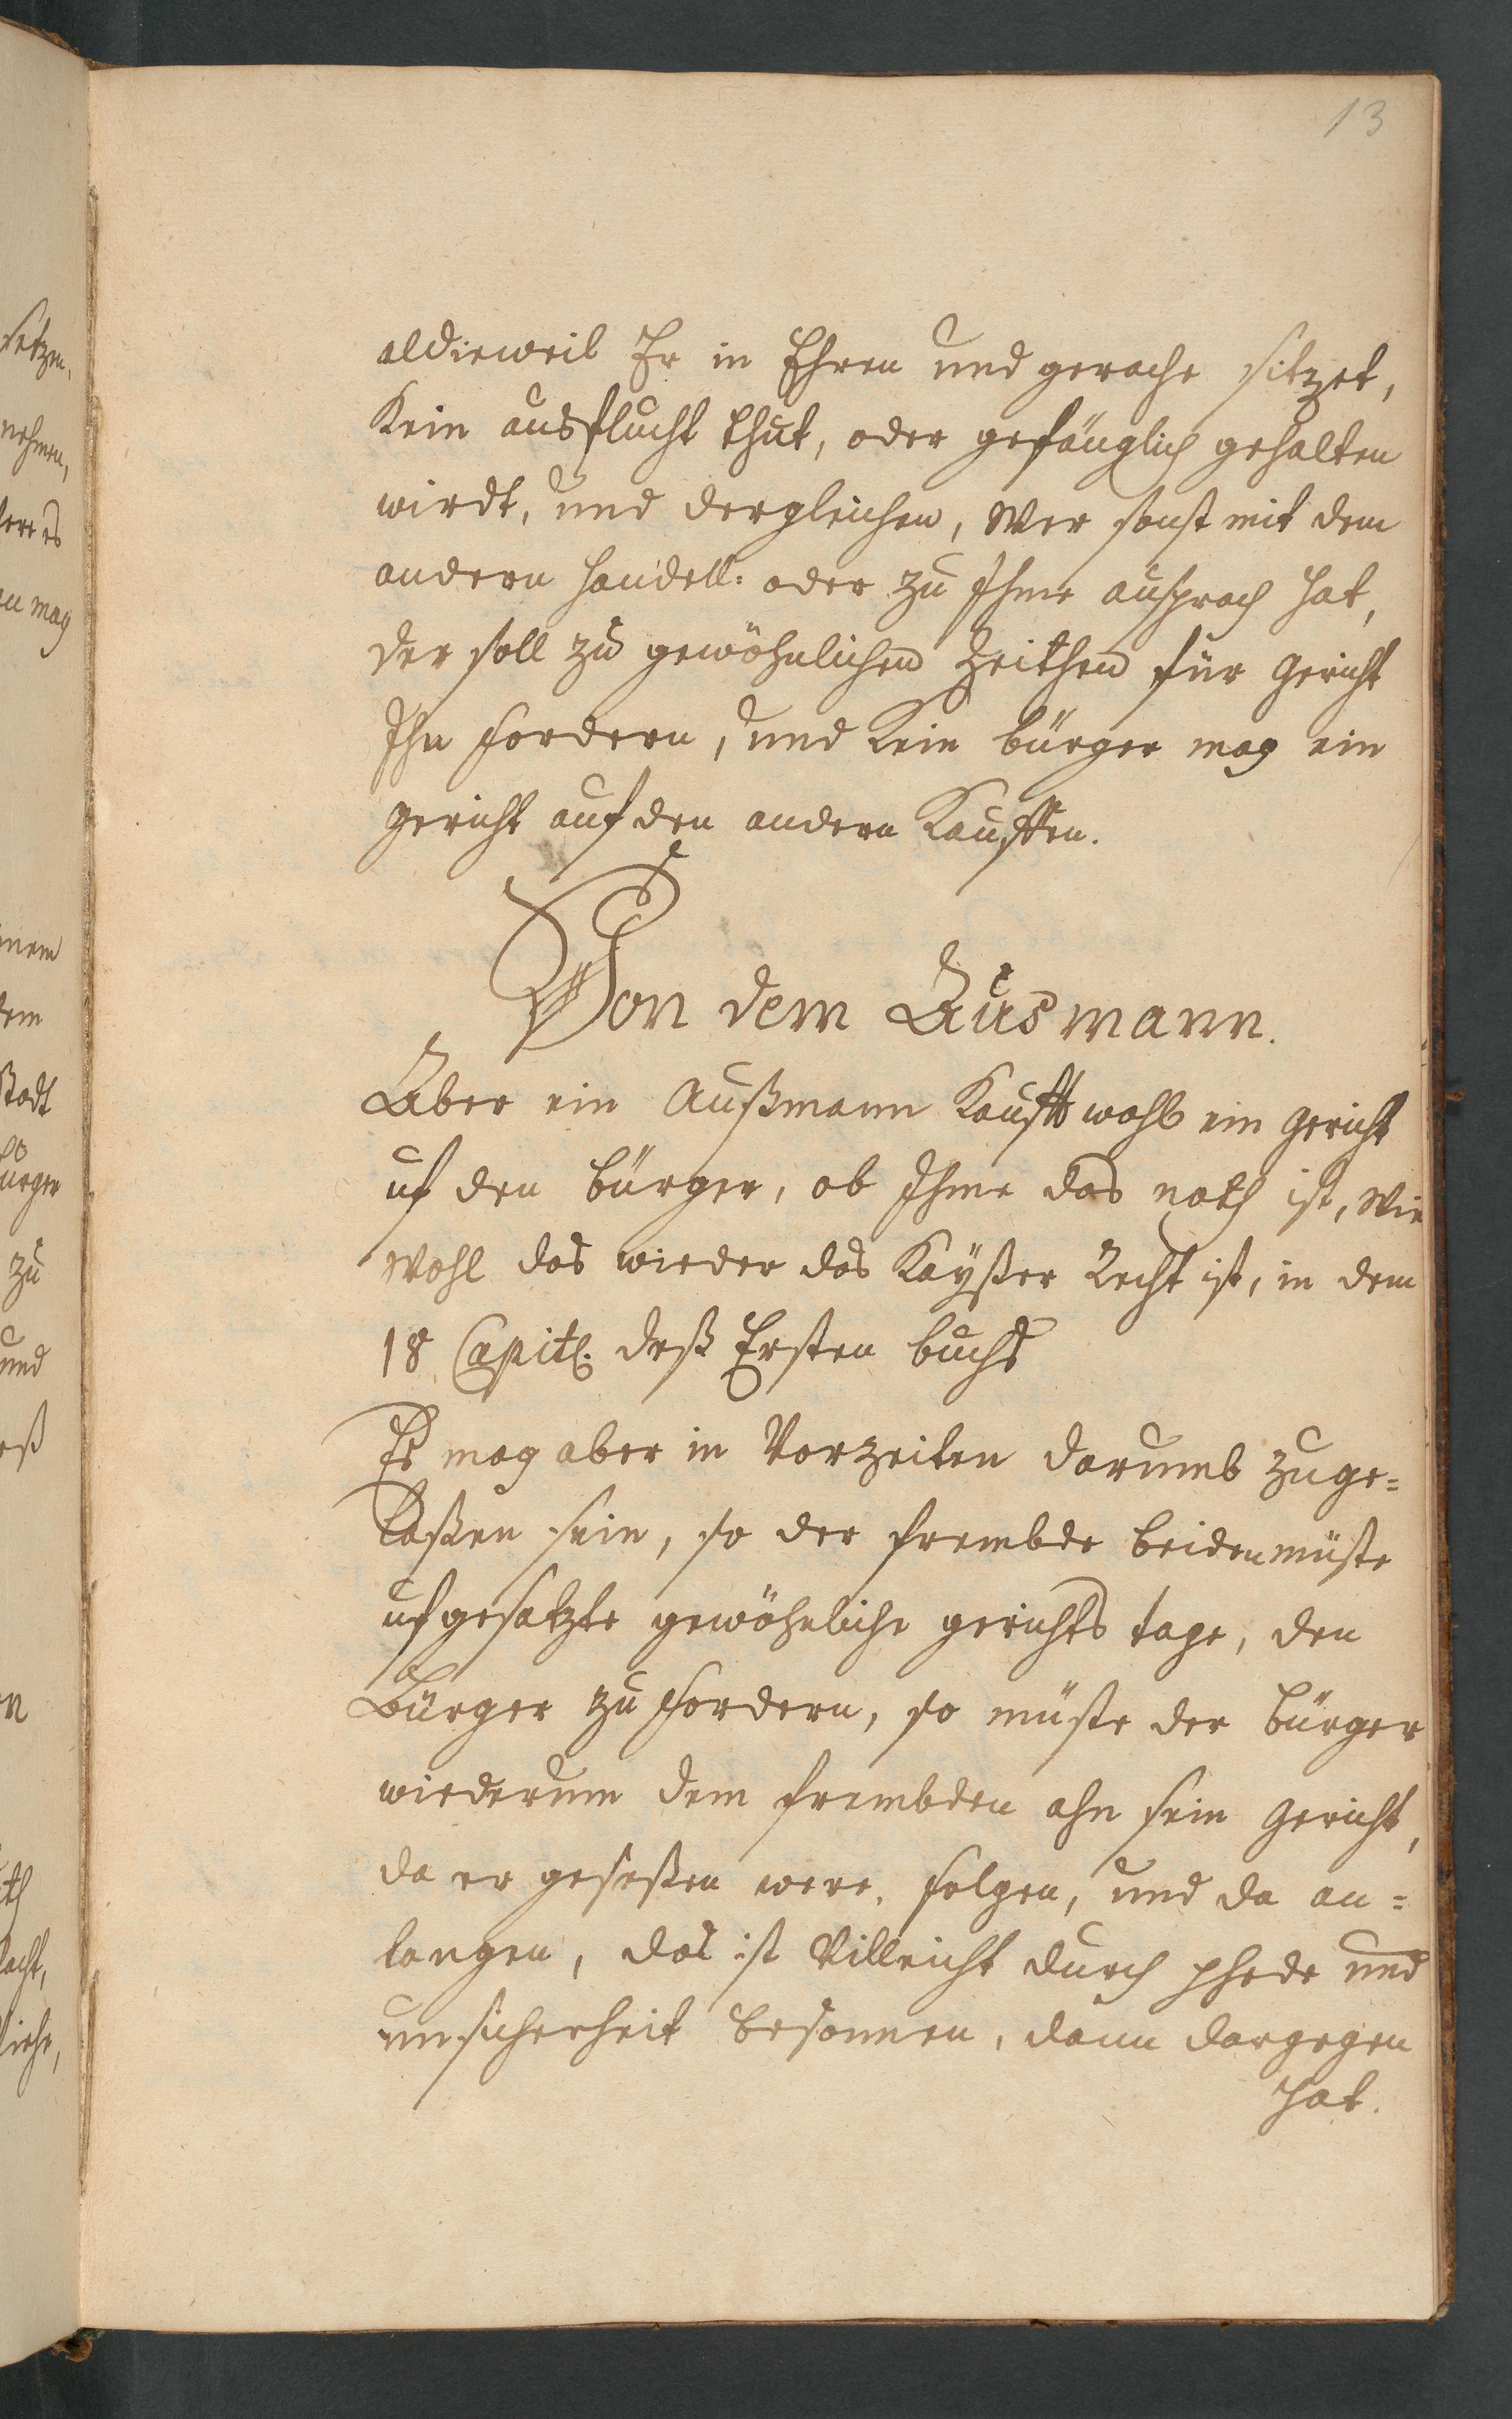 13
aldieweil Er in Ehren und gerache sitzet,
Kein ausflucht thut, oder gefänglich gehalten
wirdt, und dergleichen, Wer sonst mit dem
andern handell: oder zu Ihme ansprach hat,
der soll zu gewöhnlichen Zeithen für gericht
Ihn fordern, und Kein bürger mag ein
gericht auf den andern Kauffen.
Von dem Ausmann.
Aber ein Außmann Kaufft wohl ein gericht
uf den bürger, ob Ihme das noth ist, Wie
Wohl das wieder das Kayßer Recht ist, in dem
18 Capitl. deß Ersten buchs
Es mag aber in Vorzeiten darumb zuge=
laßen sein, so der frembde beiden müste
ufgesatzte gewöhnliche gerichts tage, den
Bürger zu fordern, so müste der bürger
wiederum dem frembden ahn sein gericht,
da er geseßen were, folgen, und da an=
langen, das ist Villeicht durch phede und
unsicherheit besonnen, dann dargegen
hat.
setzen,
nehmen,
mag
inem
dem
Stadt
bürger
zu
und